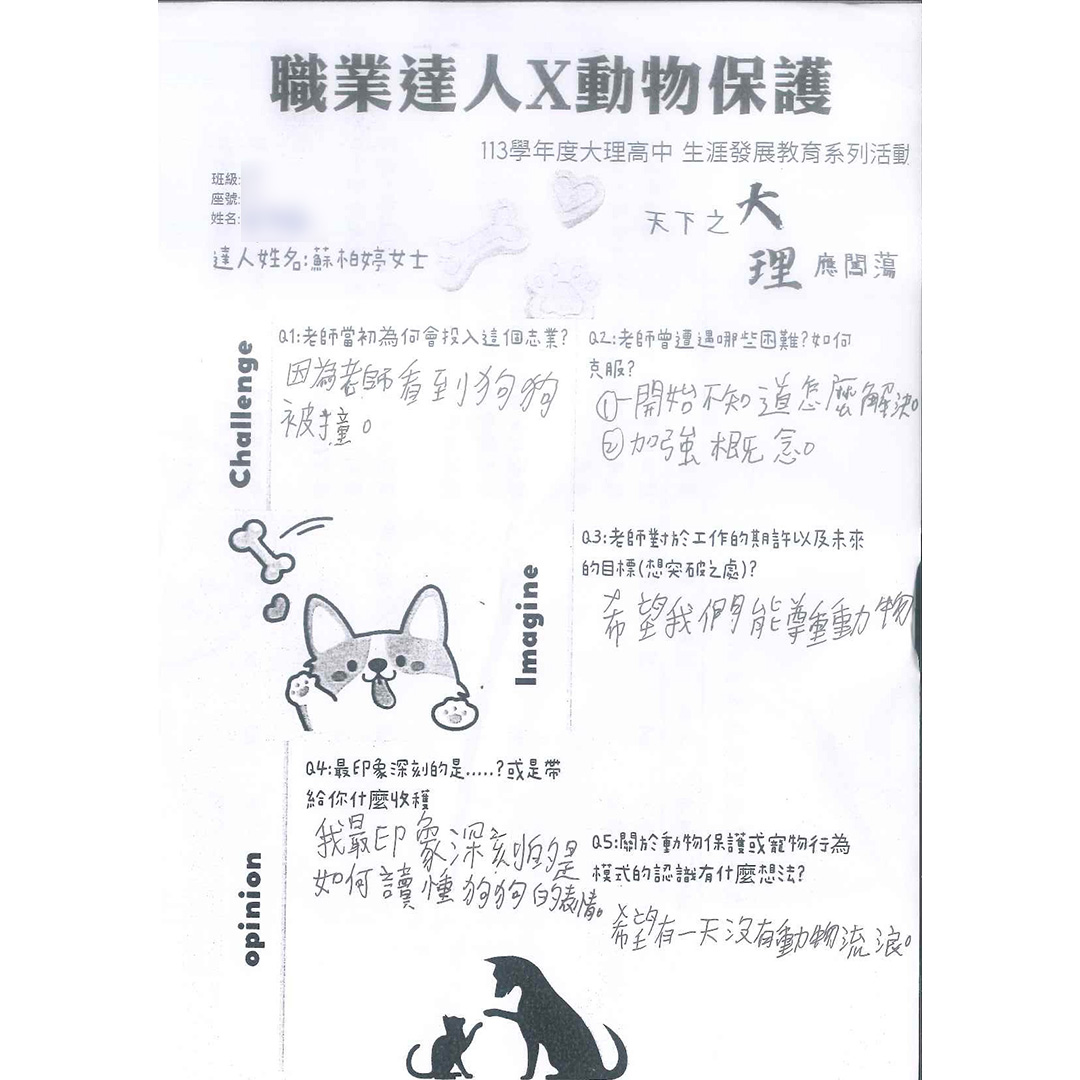 職業達人X動物保護
113學年度大理高中 生涯發展教育系列活動
班級:
座號:
姓名:
天下之大
理應闖蕩
達人姓名:蘇柏婷女士
Challenge
Q1:老師當初為何會投入這個志業?
因為老師看到狗狗
被撞。
Q2:老師曾遭遇哪些困難?如何
克服?
①一開始不知道怎麼解決。
②加強概念。
Imagine
Q3:老師對於工作的期許以及未來
的目標(想突破之處)?
希望我們能尊重動物
opinion
Q4:最印象深刻的是.....?或是帶
給你什麼收穫
我最印象深刻的是
如何讀懂狗狗的表情。
Q5:關於動物保護或寵物行為
模式的認識有什麼想法?
希望有一天沒有動物流浪。